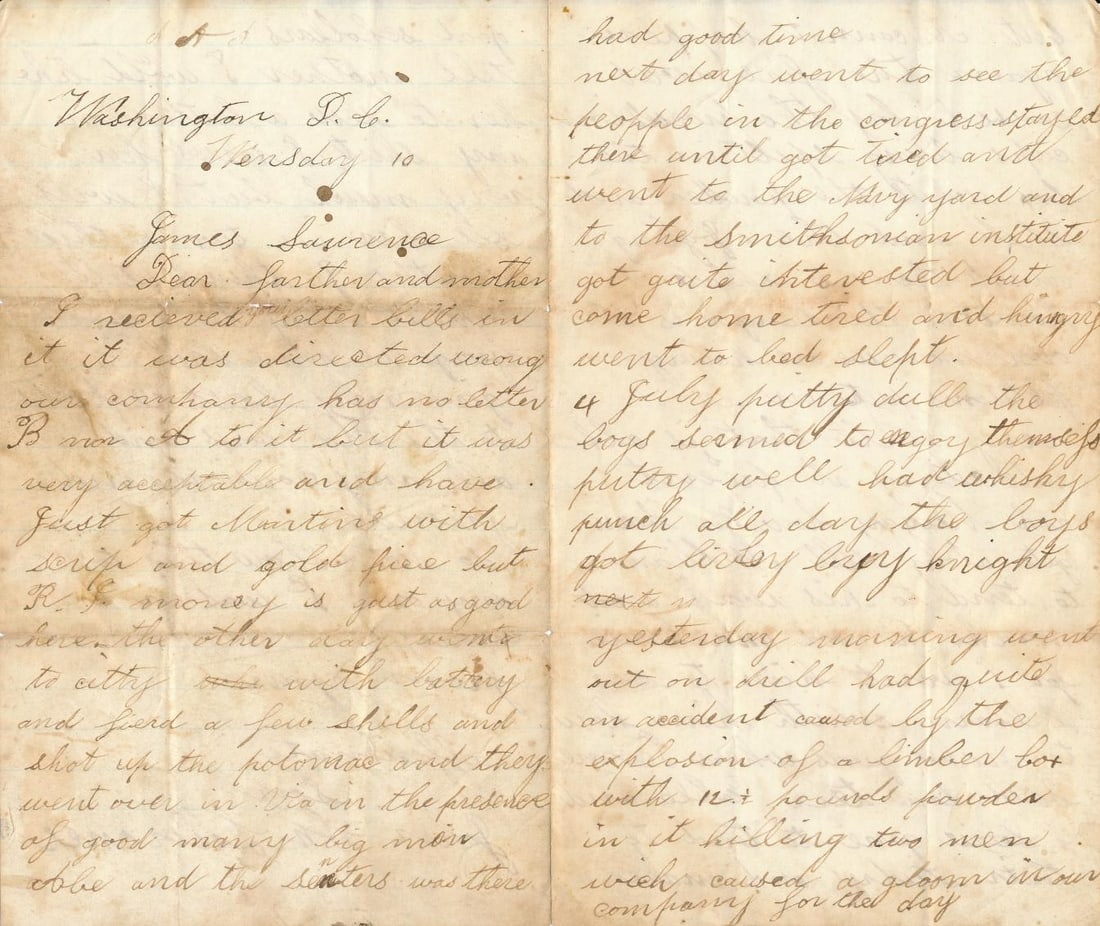 Washington D. C.
Wensday 10
James Lawrence
Dear farther and mother
I recieved your letter bills in
it it was directed wrong
our company has no letter
B nor A to it but it was
very acceptable and have
Just got Martins with
scrip and gold piece but
R. I. money is just as good
here. the other day went
to citty with battery
and fierd a few shells and
shot up the potomac and they
went over in Va in the presence
of good many big men
Abe and the senters was there
had good time
next day went to see the
peopple in the congress stayed
there until got tired and
went to the Navy yard and
to the smithsonian institute
got quite interested but
come home tired and hungry
went to bed slept.
4 July putty dull the
boys seemed to engoy themselfs
putty well had whisky
punch all day the boys
got livley by knight
next
yesterday morning went
out on drill had quite
an accident caused by the
explosion of a limber box
with 12 pounds powder
in it killing two men
wich caused a gloom in our
company for the day